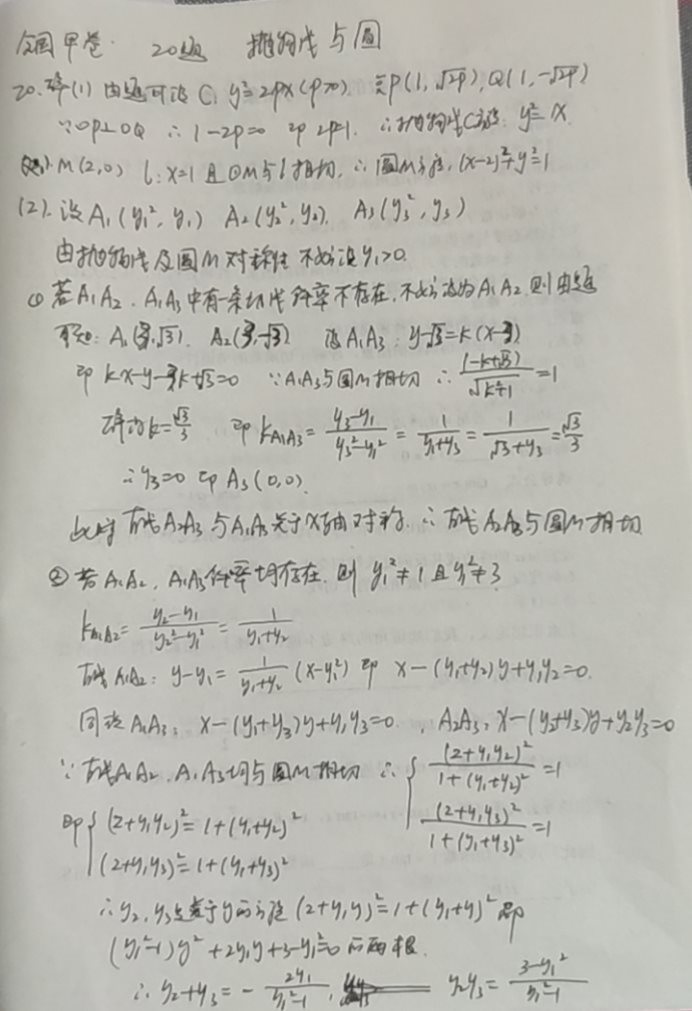 全国甲卷. 20题 抛物线与圆
20. 解(1) 由题可设 C: y²=2px(p>0) 设P(1,√2p), Q(1,-√2p)
∵OP⊥OQ ∴1-2p=0 即 2p=1. ∴抛物线C方程: y²=x.
M(2,0) l: x=1 且⊙M与l相切, ∴圆M方程: (x-2)²+y²=1
(2). 设 A₁(y₁², y₁) A₂(y₂², y₂). A₃(y₃², y₃)
由抛物线及圆M对称性 不妨设 y₁>0.
① 若A₁A₂. A₁A₃中有一条切线斜率不存在, 不妨设为A₁A₂ 则由题
可知: A₁(3,√3). A₂(3,-√3) 设A₁A₃: y-√3=k(x-3)
即 kx-y-3k+√3=0 ∵A₁A₃与圆M相切 ∴ |-k+√3|/√(k²+1) =1
解得k=√3/3 即 k_{A₁A₃}= (y₃-y₁)/(y₃²-y₁²) = 1/(y₁+y₃) = 1/(√3+y₃) = √3/3
∴y₃=0 即 A₃(0,0).
此时 直线A₂A₃与A₁A₃关于x轴对称. ∴直线A₂A₃与圆M相切
② 若A₁A₂, A₁A₃斜率均存在. 则 y₁²≠1 且 y₁²≠3
k_{A₁A₂}= (y₂-y₁)/(y₂²-y₁²) = 1/(y₁+y₂)
直线A₁A₂: y-y₁= 1/(y₁+y₂) (x-y₁²) 即 x-(y₁+y₂)y+y₁y₂=0.
同理A₁A₃: x-(y₁+y₃)y+y₁y₃=0 , A₂A₃: x-(y₂+y₃)y+y₂y₃=0
∵直线A₁A₂, A₁A₃均与圆M相切 ∴ { (2+y₁y₂)²/(1+(y₁+y₂)²) =1
(2+y₁y₃)²/(1+(y₁+y₃)²) =1
即{ (2+y₁y₂)²=1+(y₁+y₂)²
(2+y₁y₃)²=1+(y₁+y₃)²
∴y₂, y₃是关于y的方程 (2+y₁y)²=1+(y₁+y)² 即
(y₁²-1)y²+2y₁y+3-y₁²=0 的两根.
∴y₂+y₃=- 2y₁/(y₁²-1), y₂y₃= (3-y₁²)/(y₁²-1)